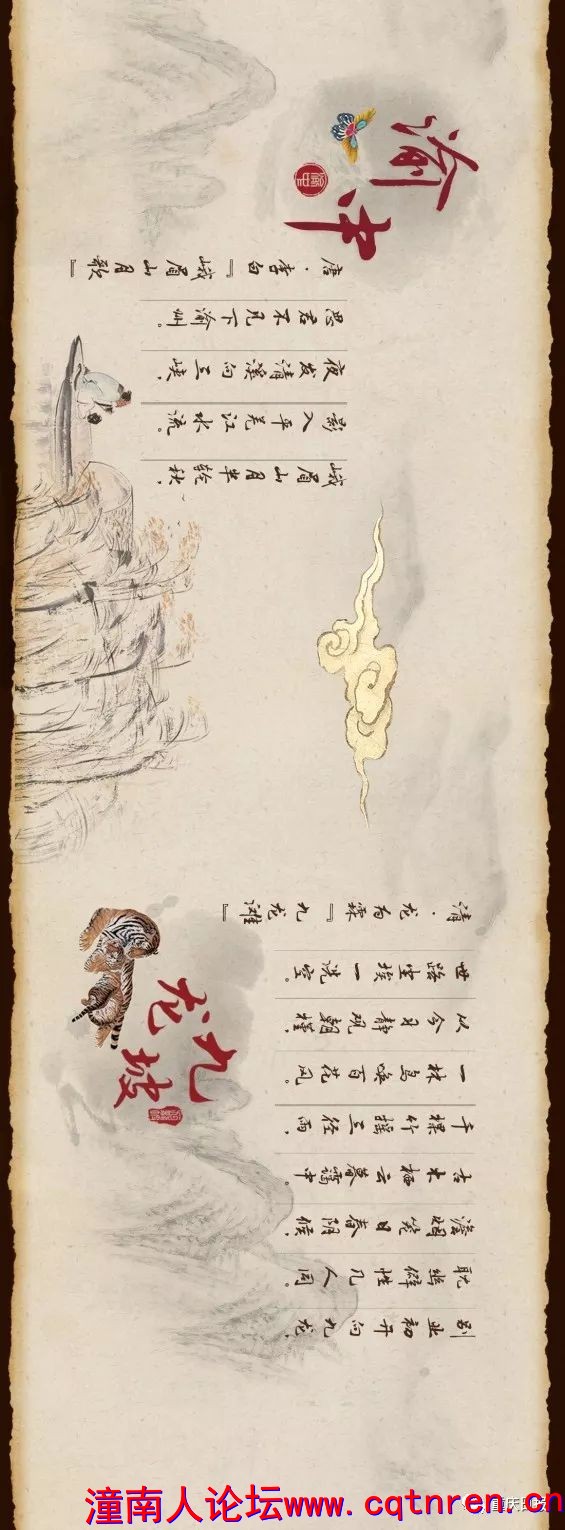 九龙坡
别业初开向九龙,
耽幽僻性几人同。
澹烟笼日春阴候,
古木栖云暮霭中。
千棵竹摇三径雨,
一林鸟唤百花风。
从今习静观朝槿,
世路尘埃一洗空。
清·龙为霖『九龙滩』
渝中
渝中
峨眉山月半轮秋,
影入平羌江水流。
夜发清溪向三峡,
思君不见下渝州。
唐·李白『峨眉山月歌』
潼南人论坛www.cqtnren.cn